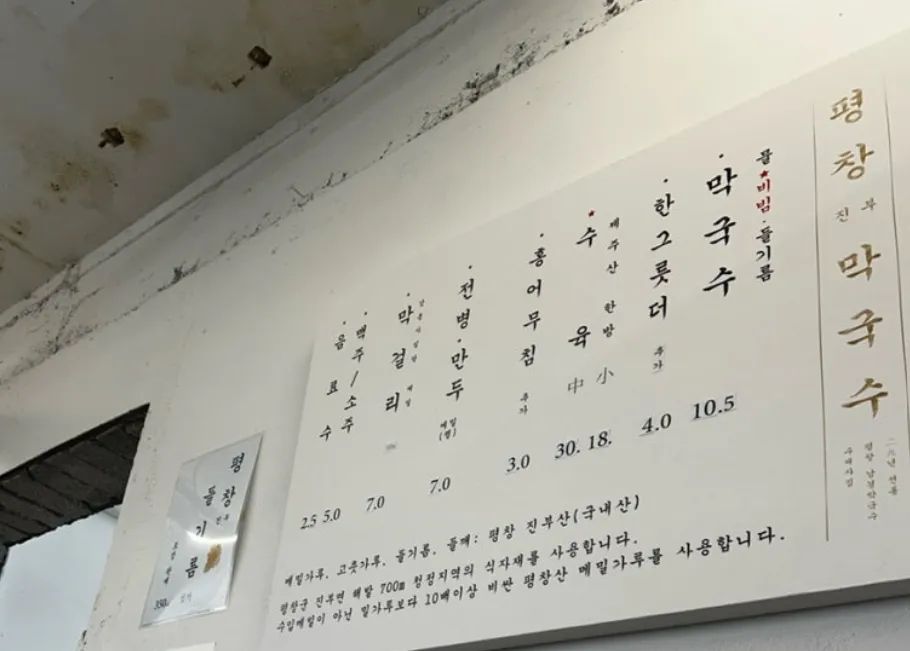 평창
진부
막국수
물 ★비빔 · 들기름
· 막국수
10.5
· 한그릇더 추가
4.0
제주산 한방
★ 수육
小 中
18. 30.
· 홍어무침 추가
3.0
· 전병·만두 메밀
7.0
· 막걸리
7.0
· 맥주/소주
5.0
· 음료수
2.5
메밀가루, 고춧가루, 들기름, 들깨: 평창 진부산(국내산)
평창군 진부면 해발 700m 청정지역의 식자재를 사용합니다.
수입메밀이 아닌 밀가루보다 10배이상 비싼 평창산 메밀가루를 사용합니다.
평창
진부
들기름